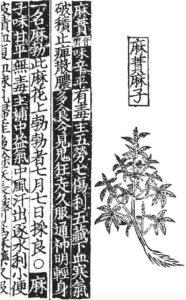 麻蕡麻子
麻蕡味辛平有毒主五勞七傷利五藏下血寒氣
破積止痹散膿多食令見鬼狂走久服通神明輕身
一名麻勃此麻花上勃勃者七月七日採良○麻
子味甘平無毒主補中益氣中風汗出逐水利小便